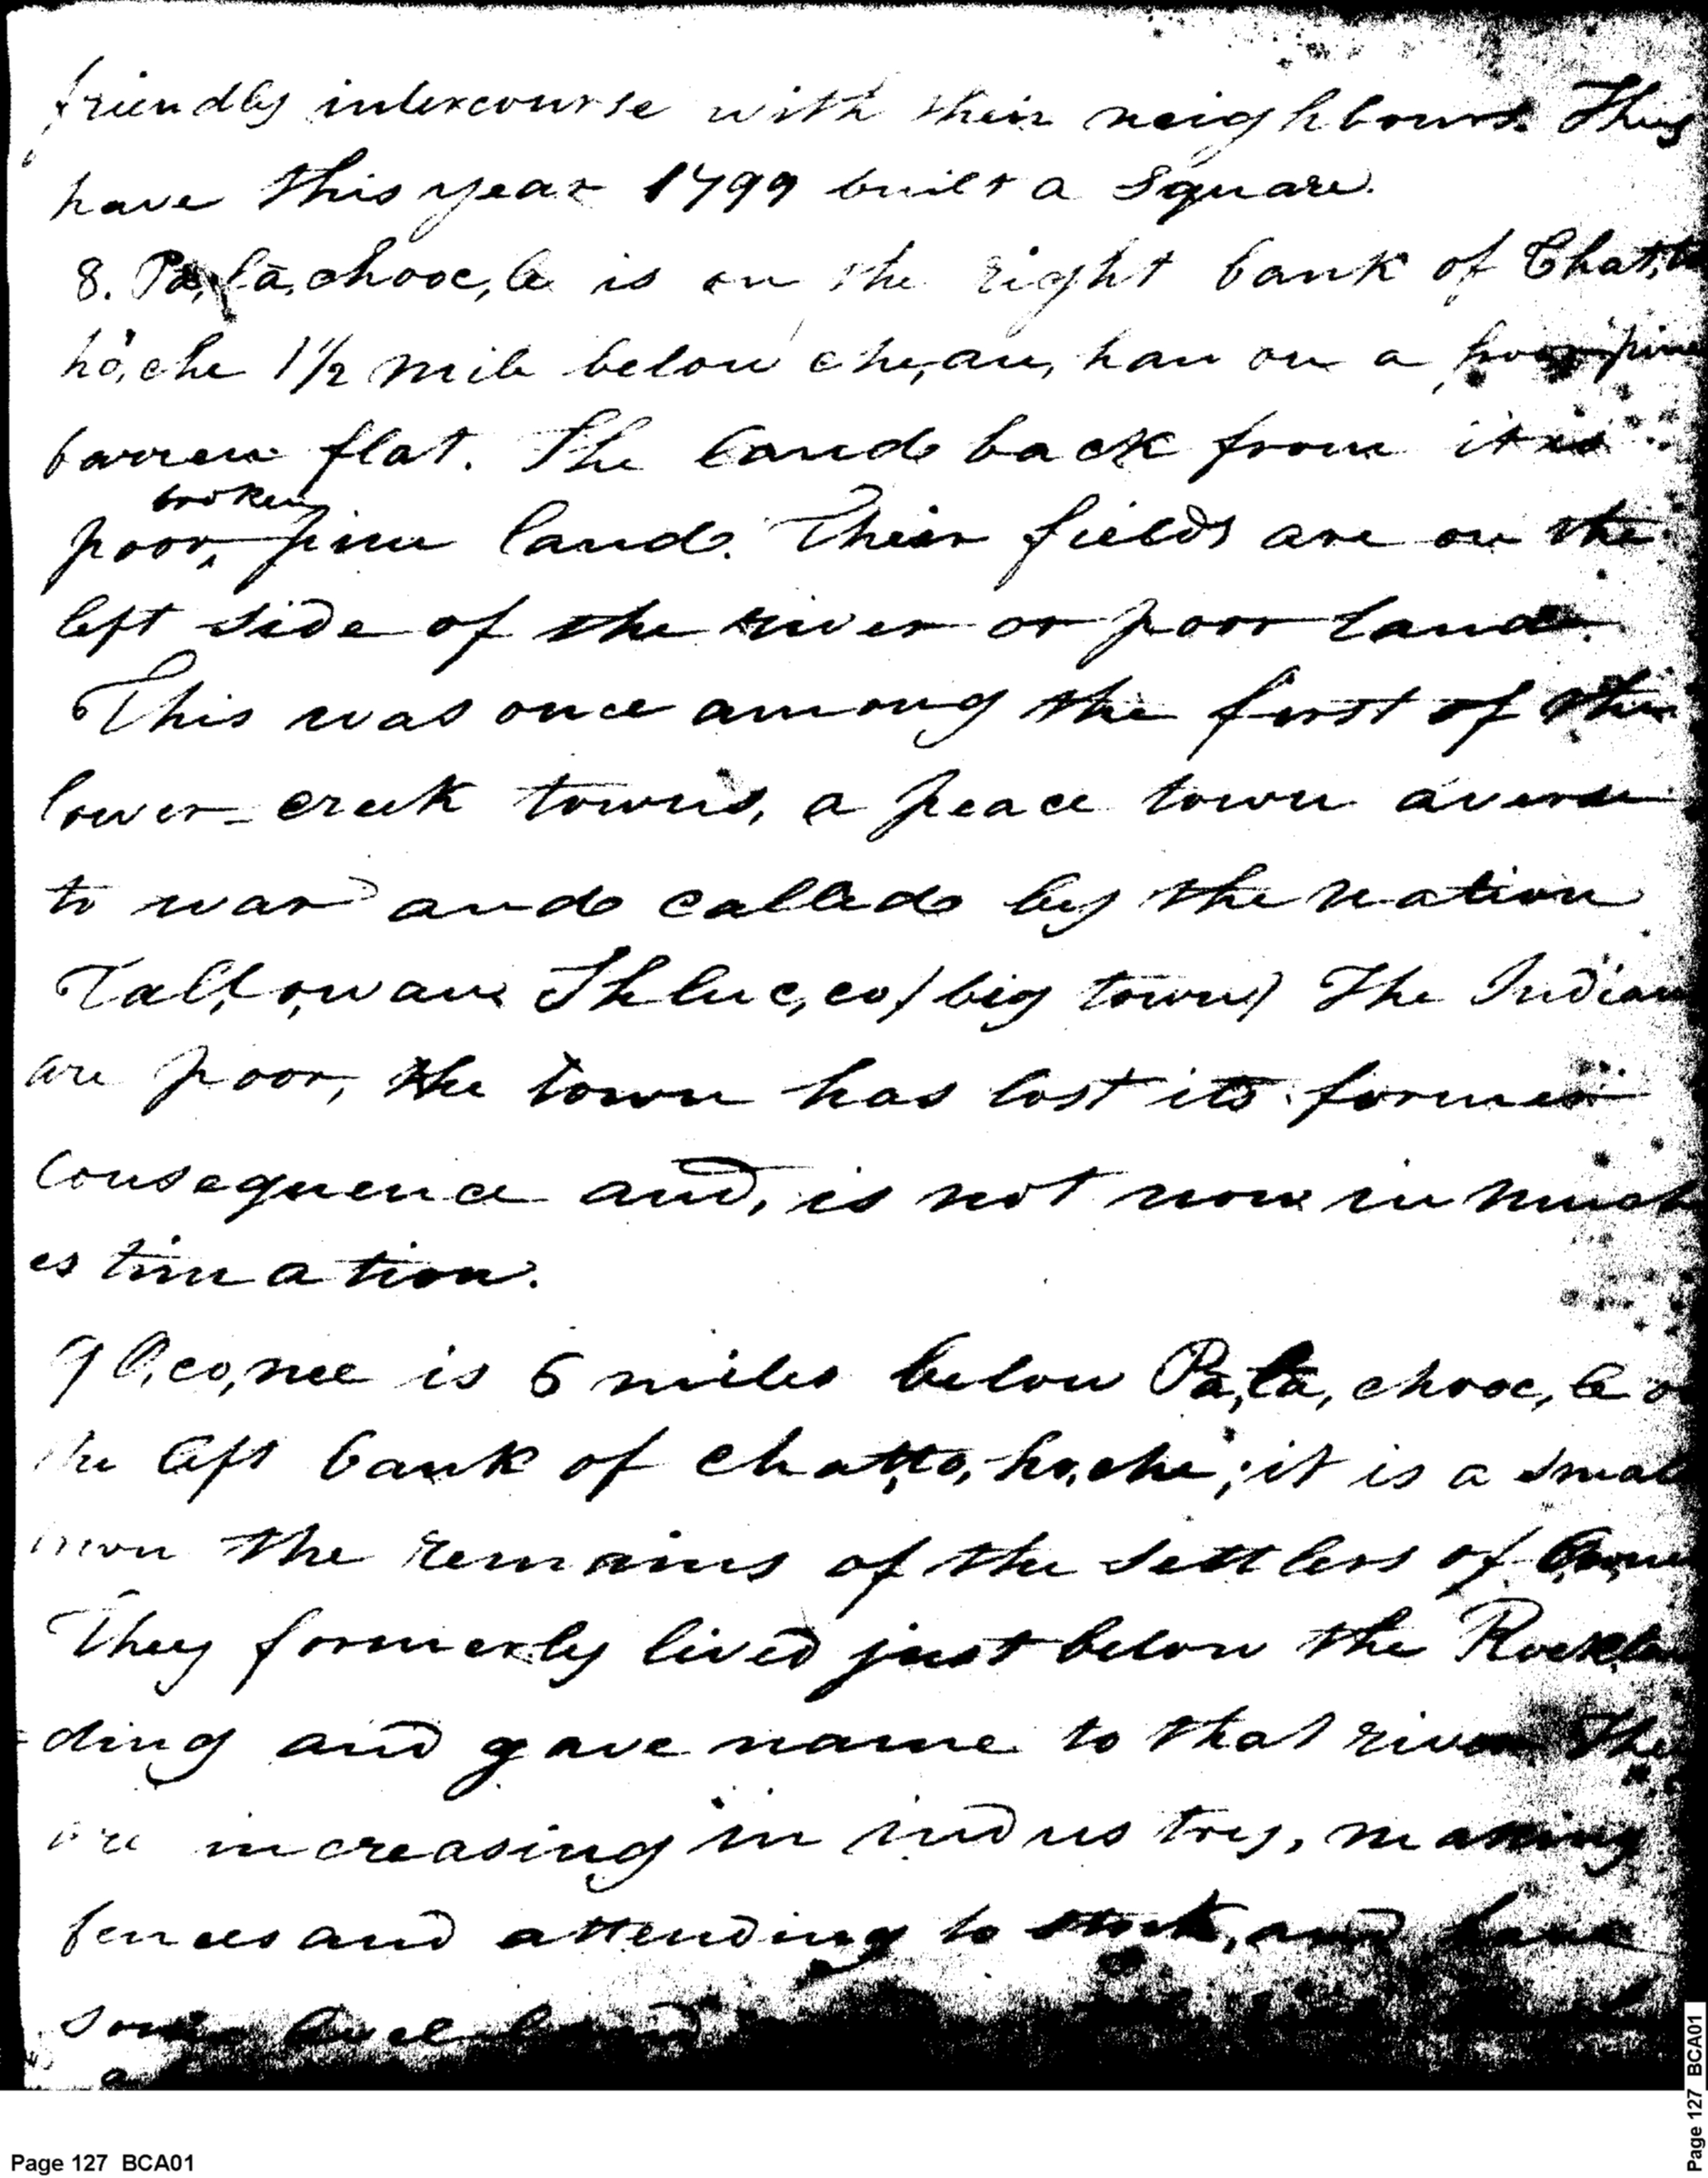 friendly intercourse with their neighbours. They
have this year 1799 built a Square.
8. Pā,lā,chooc,le is on the right bank of Chat,to
hō,che 1½ mile below che,au,hau on a poor pine
barren flat. The land back from it is
broken
poor, pine land. Their fields are on the
left side of the river or poor land.
This was once among the first of the
lower creek towns, a peace town averse
to war and called by the nation
Tal,lo,wau Thluc,co (big town) The Indians
are poor, the town has lost its former
Consequence and, is not now in much
estimation.
9 O,co,nee is 6 miles below Pā,lā,chooc,le on
the left bank of Chatto,ho,che; it is a small
town the remains of the settlers of
They formerly lived just below the Rocklan
=ding and gave name to that river They
are increasing in industry, making
fences and attending to stock, and have
some level land